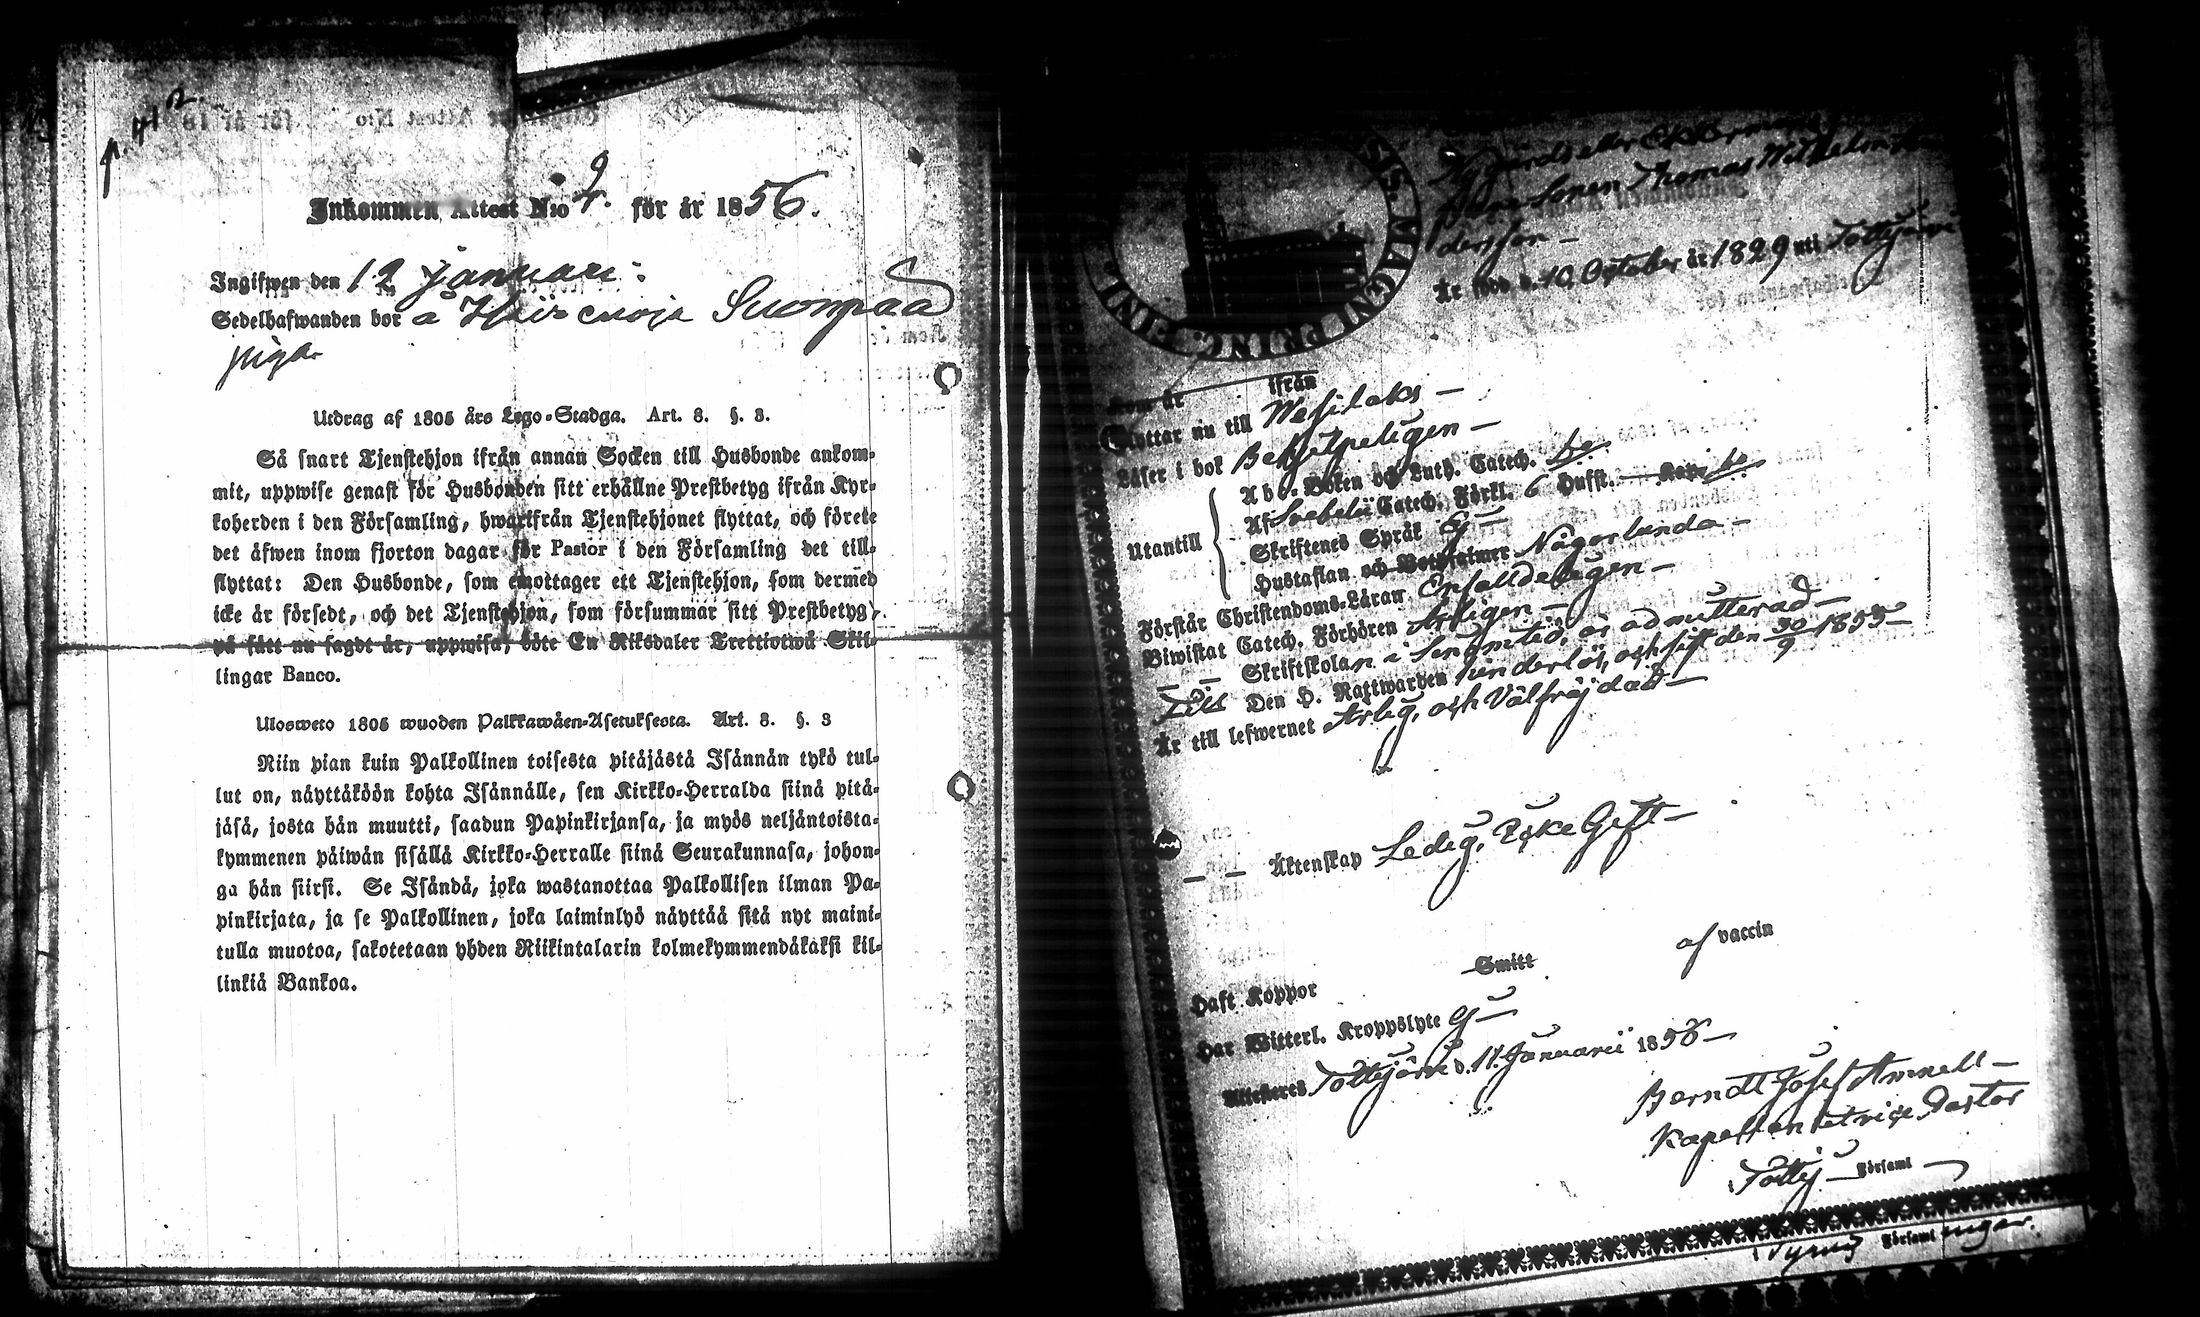 p. 412.
Inkommen Attest N:o 9. för år 1856.
Ingifwen den 12 Januari:
Sedelhafwanden bor å Suonpää
piga
Utdrag af 1805 års Lego-Stadga. Art. 8. §. 3.
Så snart Tjenstehjon ifrån annan Socken till Husbonde ankom-
mit, uppwise genast för Husbonden sitt erhållne Prestbetyg ifrån Kyr-
koherden i den Församling, hwarifrån Tjenstehjonet flyttat, och förete
det äfwen inom fjorton dagar för Pastor i den Församling det till-
flyttat: Den Husbonde, som emottager ett Tjenstehjon, som dermed
icke är försedt, och det Tjenstehjon, som försummar sitt Prestbetyg,
på sätt nu sagdt är, uppwisa, böte En Riksdaler Trettiotwå Skil-
lingar Banco.
Ulosweto 1805 wuoden Palkkawäen-Asetuksesta. Art. 8. §. 3
Niin pian kuin Palkollinen toisesta pitäjästä Isännän tykö tul-
lut on, näyttäköön kohta Isännälle, sen Kirkko-Herralda siinä pitä-
jäsä, josta hän muutti, saadun Papinkirjansa, ja myös neljäntoista-
kymmenen päiwän sisällä Kirkko-Herralle siinä Seurakunnasa, johon-
ga hän siirsi. Se Isändä, joka wastanottaa Palkollisen ilman Pa-
pinkirjata, ja se Palkollinen, joka laiminlyö näyttää sitä nyt maini-
tulla muotoa, sakotetaan yhden Riikintalarin kolmekymmendäkaksi kil-
linkiä Bankoa.
MAGNI PRINC. FINL.
Sonen Thomas Wilhelm
dersson –
Är född d. 10 October år 1829 uti Tottijärvi
Kom år ifrån
Flyttar nu till Wesilaks –
Läser i bok Behjelpeligen –
Utantill
Abc-Boken och Luth. Catech. be
Af Svebelii Catech. Förkl. 6 Hufst. –
Skriftenes Språk Ej –
Hustaflan och Botpsalmer Någorlunda –
Förstår Christendoms-Läran Enfalldeligen –
Biwistat Catech. Förhören Årligen –
— — Skriftskolan i sin omtid, är admitterad –
Till Den H. Nattwarden hinderlös, och sist den 30/9 1855 –
Är till lefwernet Ärlig, och Välfräjdad –
— — Äktenskap Ledig, Icke Gift –
Haft Koppor Smitt af vaccin
Har Witterl. Kroppslyte Ej –
Attesteras Tottijärvi d. 11. Januarii 1856 –
Berndt Josef Amnell –
Kapellan et vice Pastor
Tottij – Församl
Församl